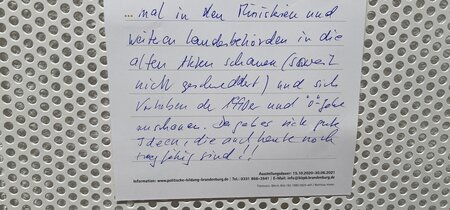 ... mal in den Ministerien und
weiteren Landesbehörden in die
alten Akten schauen (soweit
nicht geschreddert) und sich
Vorhaben der 1990er und
anschauen. Da gab es viele gute
Ideen, die auch heute noch
tragfähig sind!!
Ausstellungsdauer: 15.10.2020–30.06.2021
Information: www.politische-bildung-brandenburg.de / Tel.: 0331 866-3541 | E-Mail: info@blpb.brandenburg.de